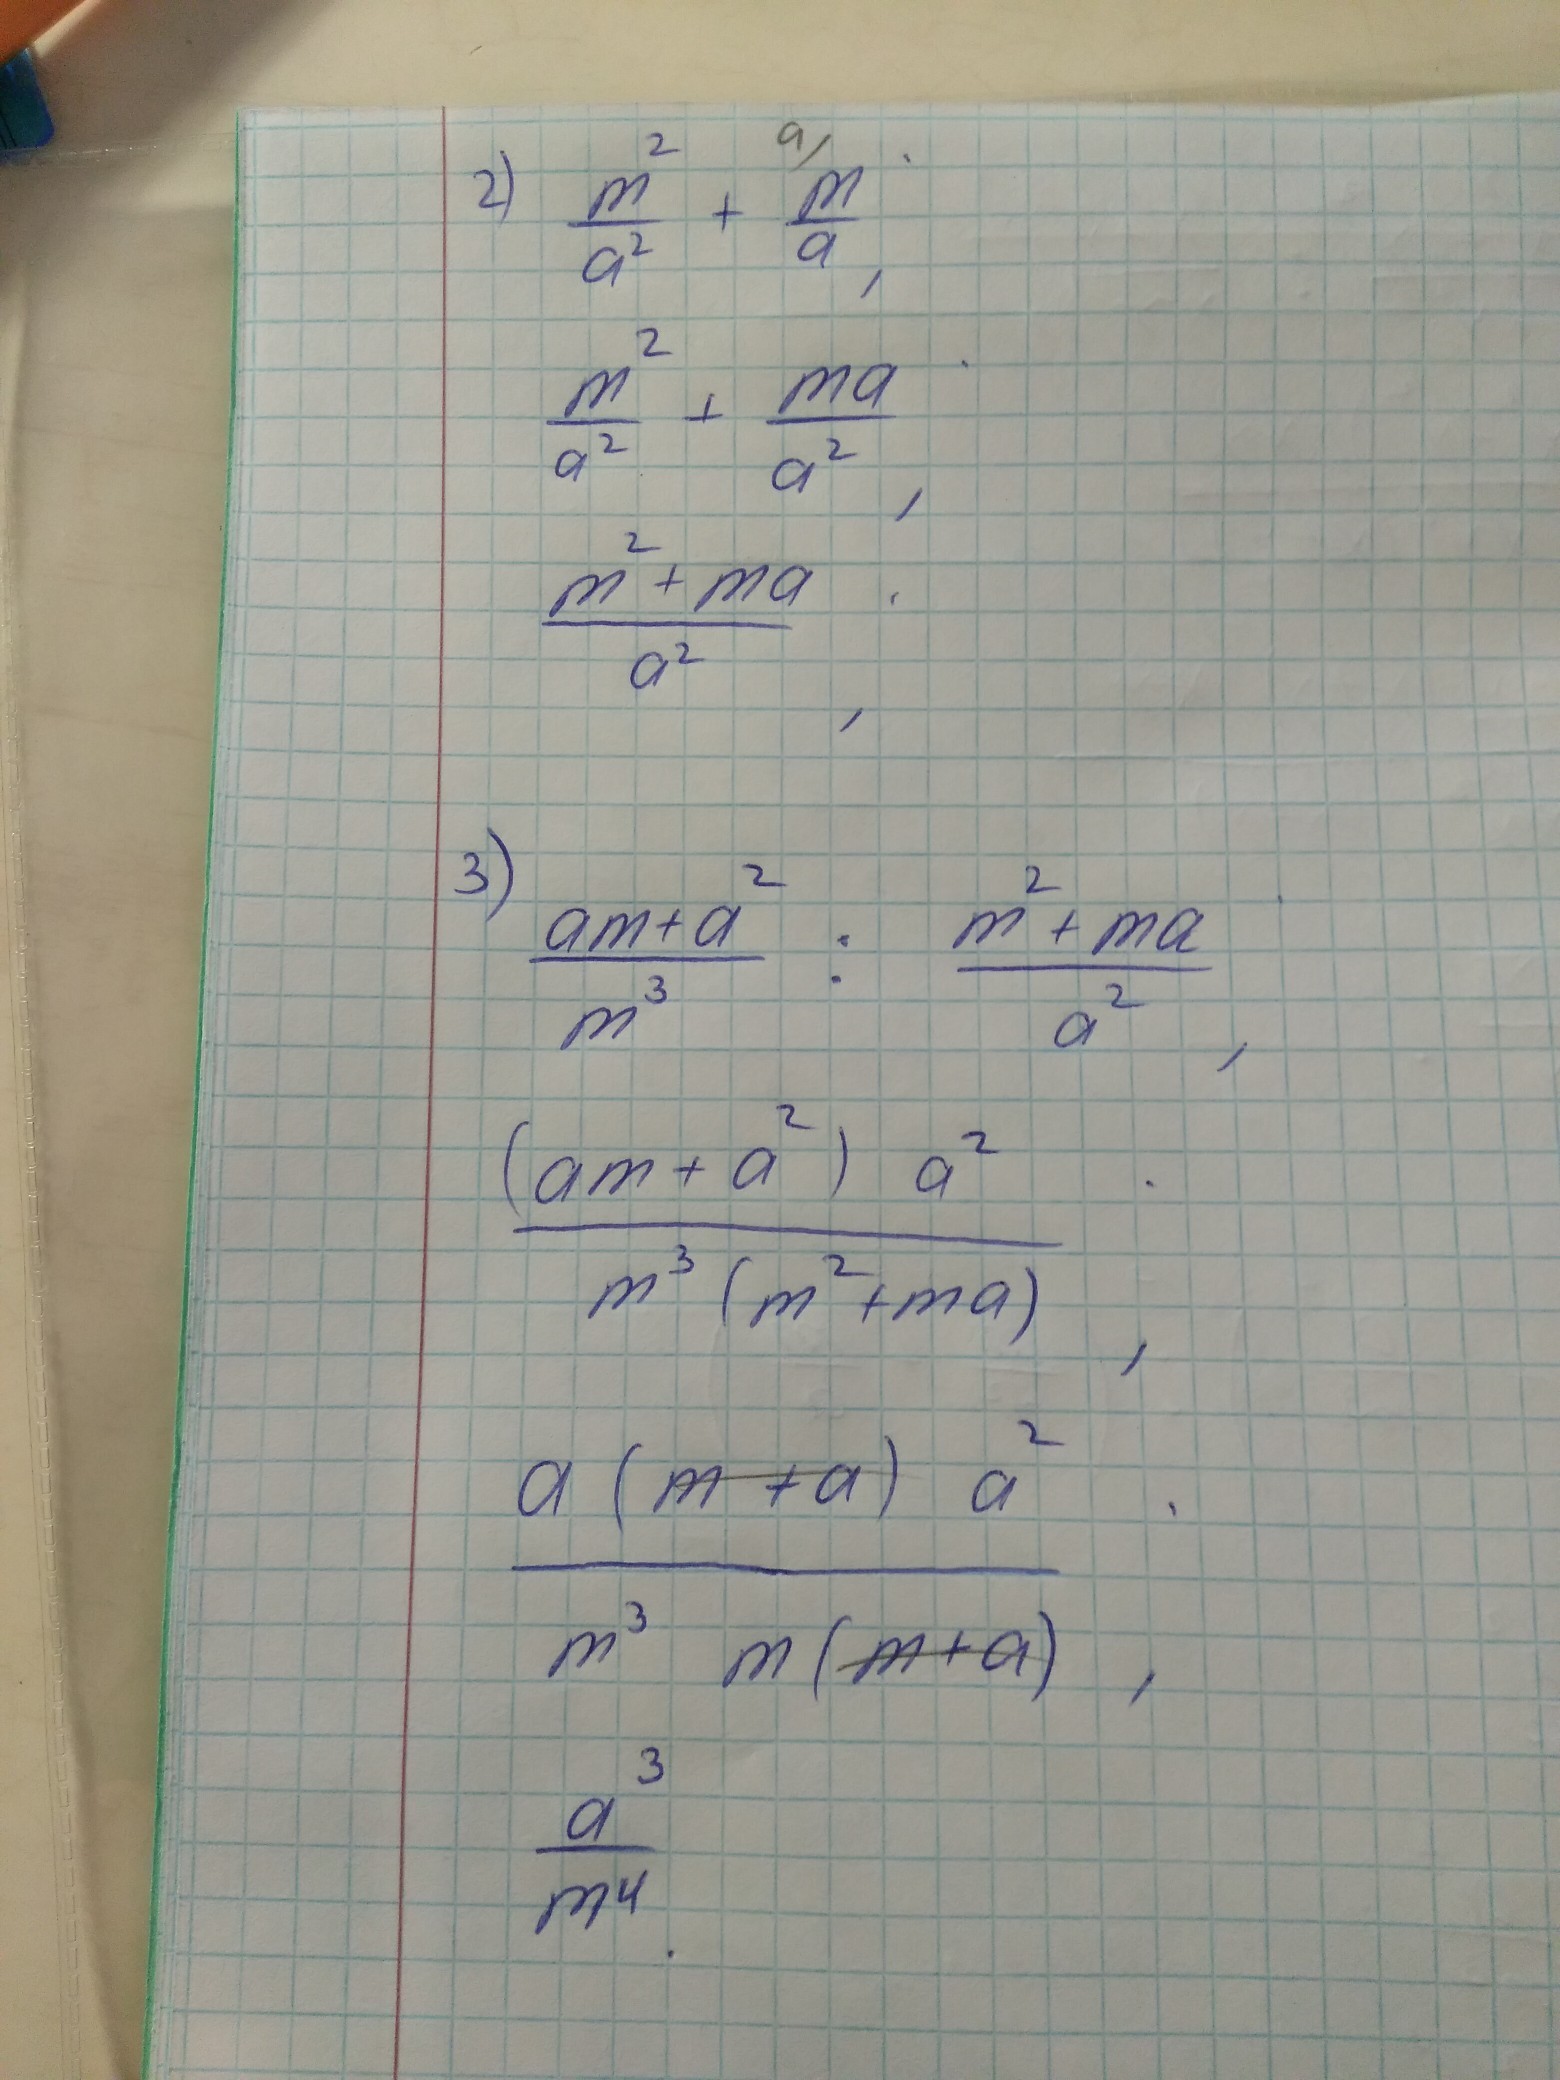 2) m²/a² + m/a ᵃ⁄ ,
m²/a² + ma/a² ,
(m² + ma)/a² ,
3) (am + a²)/m³ : (m² + ma)/a² ,
((am + a²) a²)/(m³ (m² + ma)) ,
(a (m + a) a²)/(m³ m (m + a)) ,
a³/m⁴ .